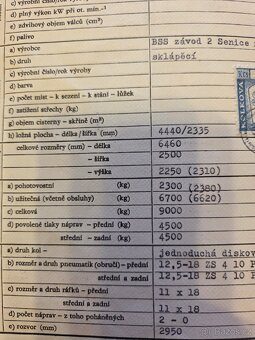 c) výrobní číslo/rok výroby
d) plný výkon kW při ot. min.⁻¹
e) zdvihový objem válců (cm³)
f) palivo
a) výrobce BSS závod 2 Senice n
b) druh sklápěcí
c) výrobní číslo/rok výroby
d) barva
e) počet míst – k sezení – k stání – lůžek
f) zatížení střechy (kg)
g) objem cisterny – skříně (m³)
h) ložná plocha – délka/šířka (mm) 4440/2335
celkové rozměry (mm) – délka 6460
– šířka 2500
– výška 2250 (2310)
a) pohotovostní (kg) 2300 (2380)
b) užitečná (včetně obsluhy) (kg) 6700 (6620)
c) celková (kg) 9000
d) povolené tlaky náprav – přední (kg) 4500
střední – zadní (kg) 4500
a) druh kol – jednoduchá diskov
b) rozměr a druh pneumatik (obručí) – přední 12,5-18 ZS 4 10 P
střední a zadní 12,5-18 ZS 4 10 P
c) rozměr a druh ráfků – přední 11 x 18
střední a zadní 11 x 18
d) počet náprav – z toho poháněných 2 - 0
e) rozvor (mm) 2950
KOLKOVÁ